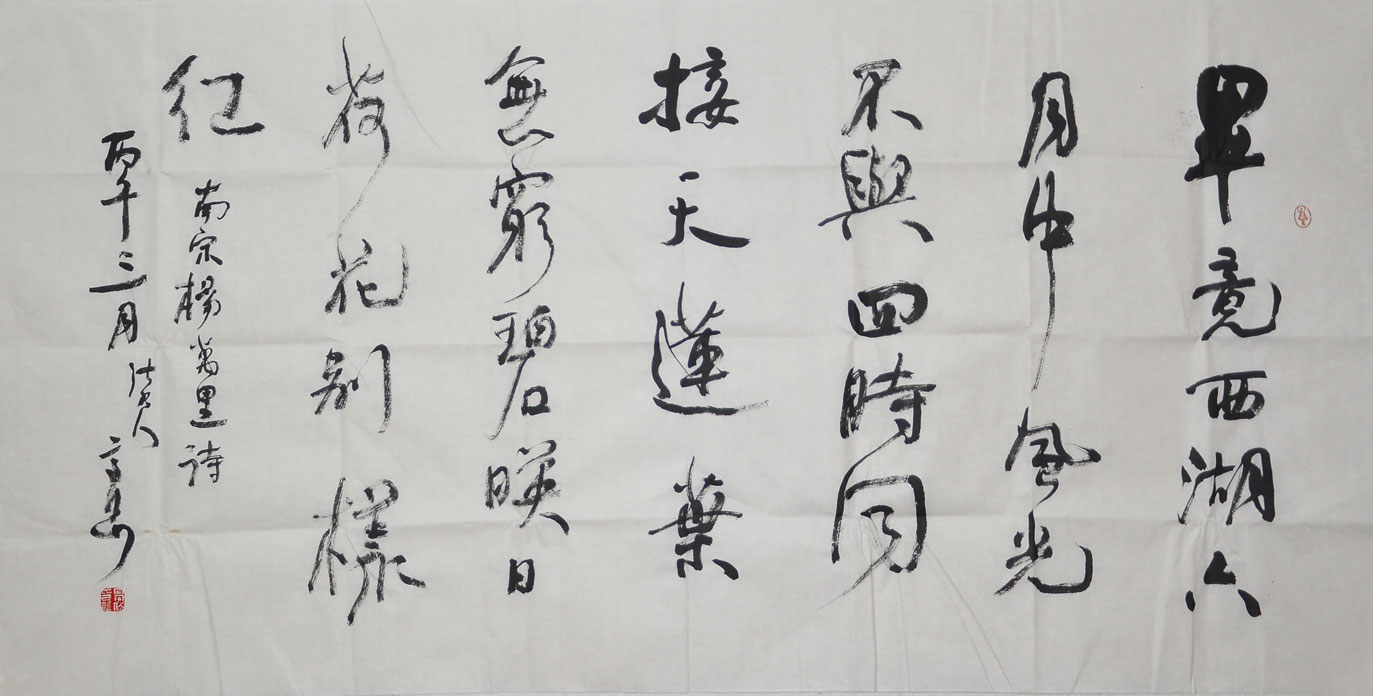 畢竟西湖六
月中風光
不與四時同
接天蓮葉
無窮碧暎日
荷花别樣
红
南宗楊萬里詩
丙午三月